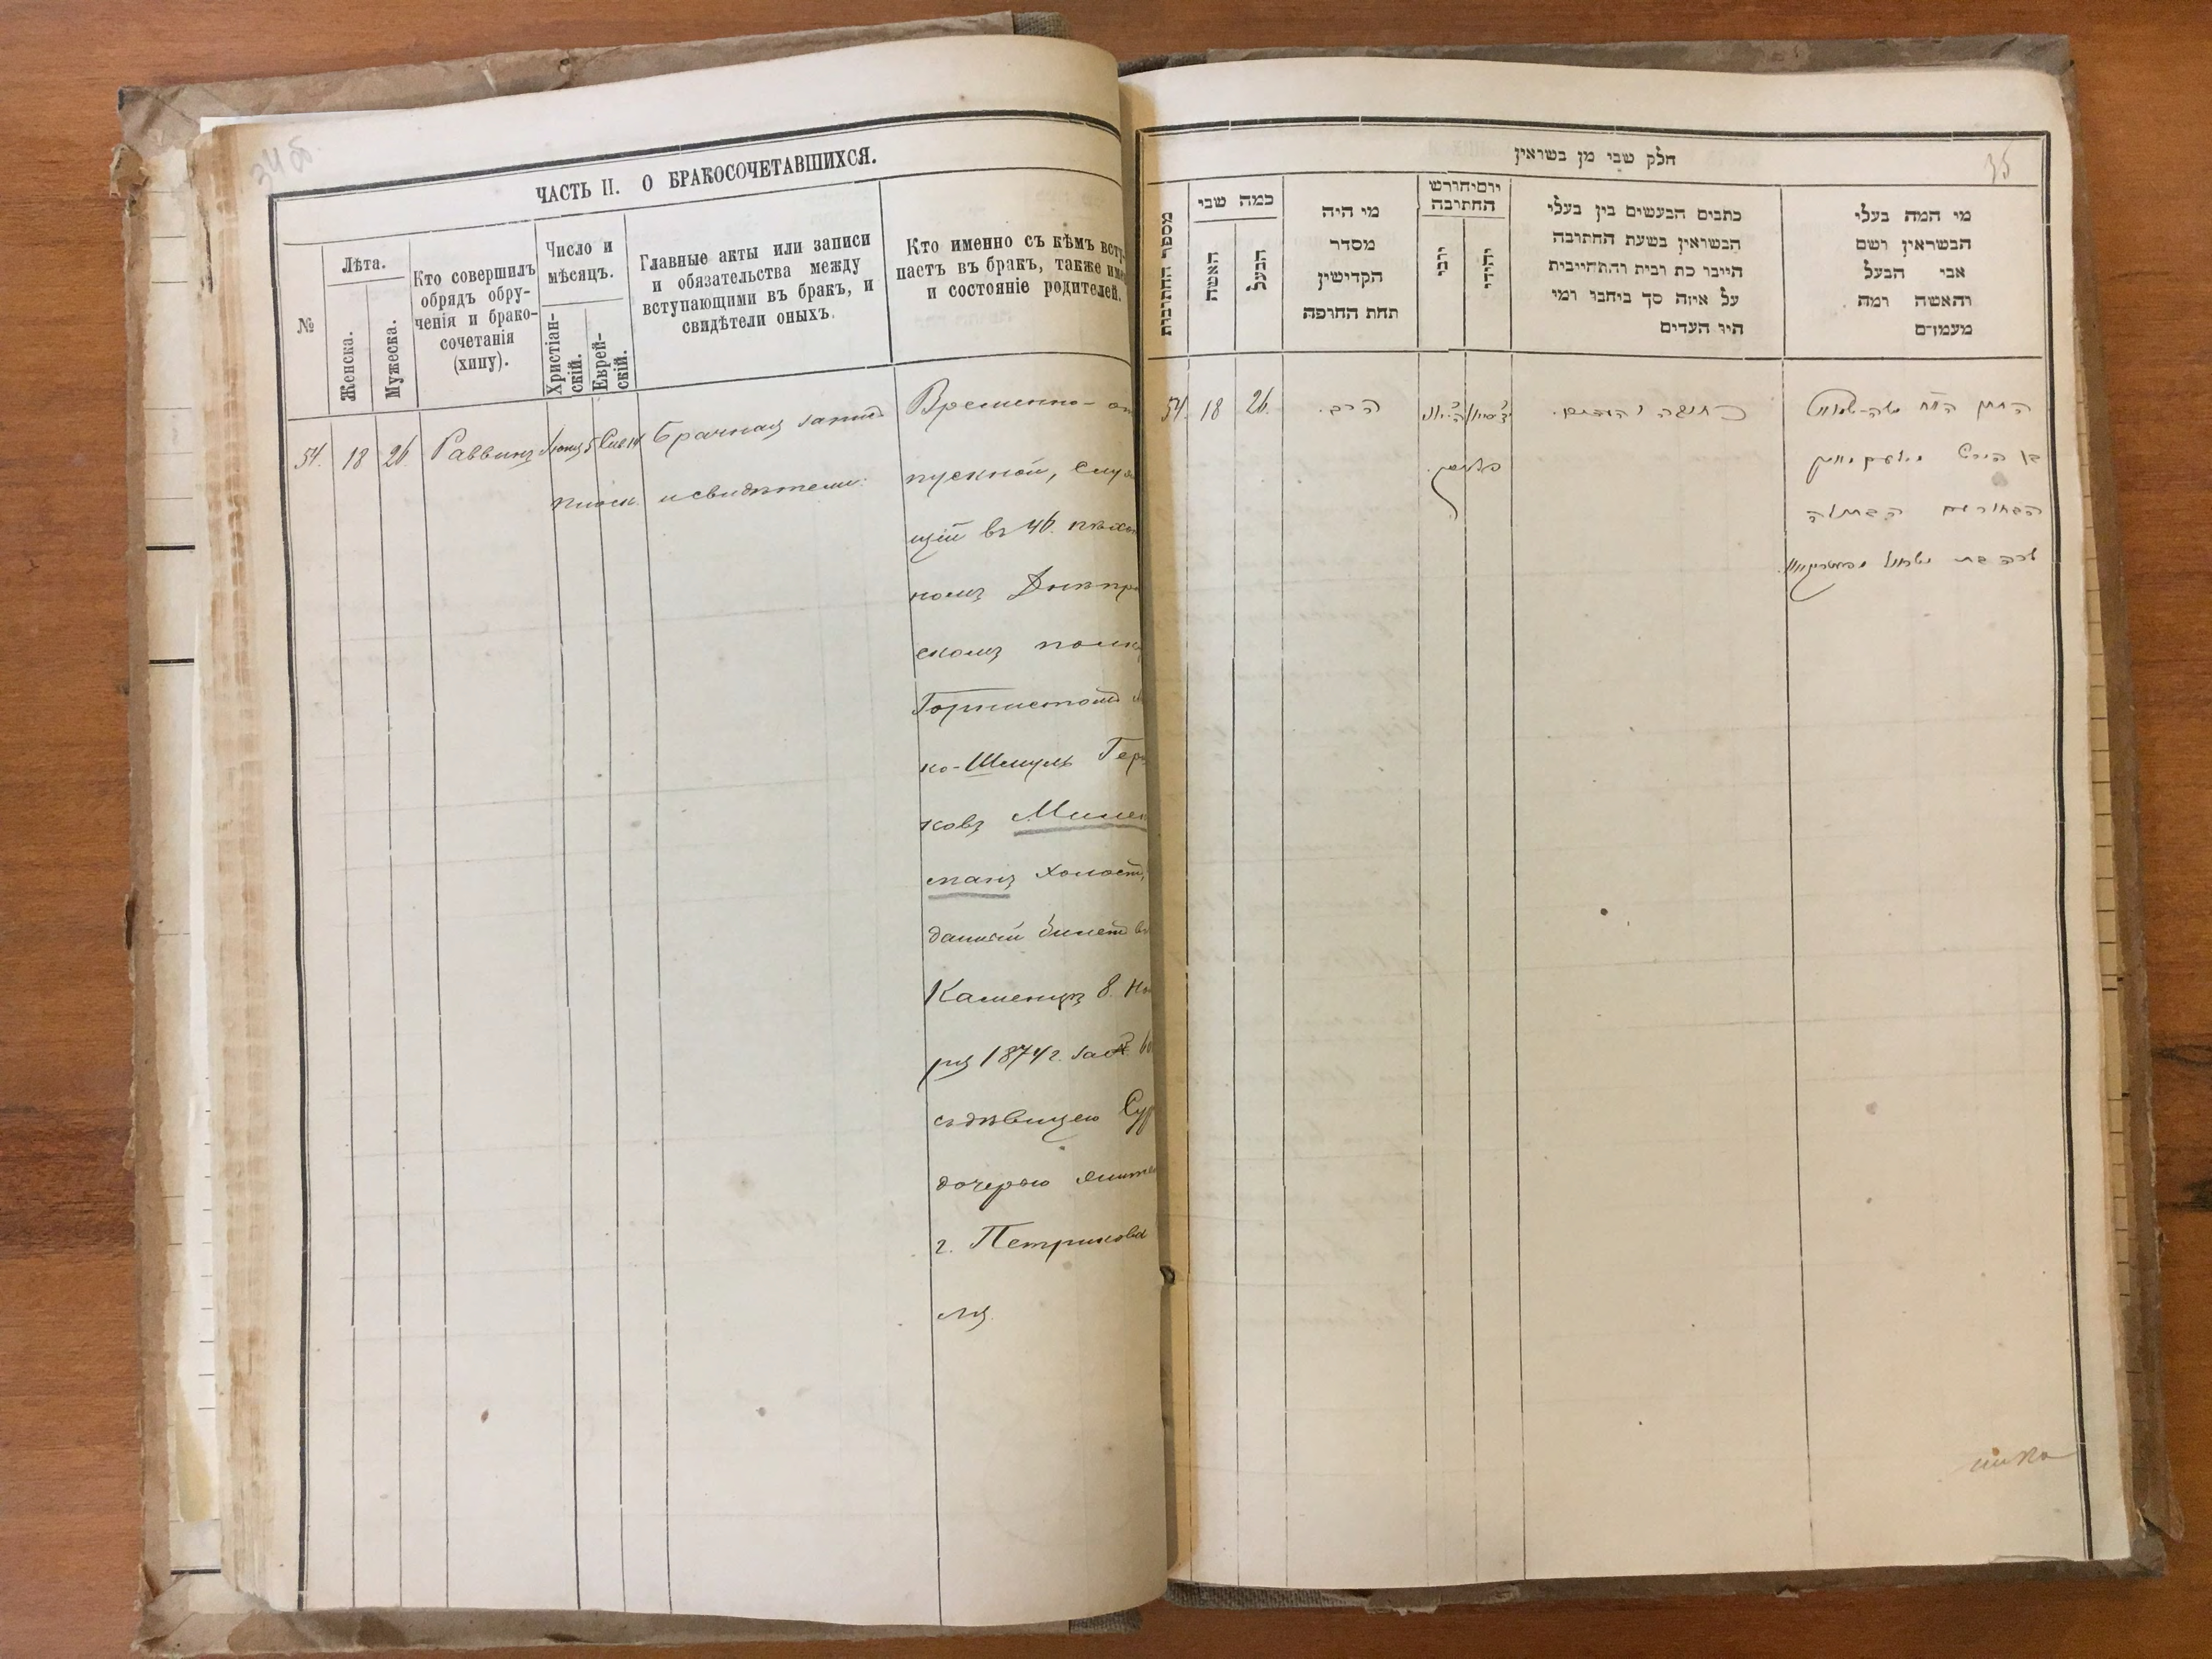 34 об.
ЧАСТЬ II. О БРАКОСОЧЕТАВШИХСЯ.
№
Лѣта.
Женска.
Мужеска.
Кто совершилъ
обрядъ обру-
ченія и брако-
сочетанія
(хипу).
Число и
мѣсяцъ.
Христіан-
скій.
Еврей-
скій.
Главные акты или записи
и обязательства между
вступающими въ бракъ, и
свидѣтели оныхъ.
Кто именно съ кѣмъ всту-
паетъ въ бракъ, также име
и состояніе родителей.
54. 18 26. Раввинъ Іюня 5 Сив 14 Брачная запись
и свидѣтели:
Временно-от
пускной, служа
щій въ 46. пѣхот
номъ Днѣпро
скомъ полку
Горнистомъ
ко-Шмуль Гер
ковъ Милен
манъ холост,
данный билетъ въ
Каменцѣ 8. Но
ря 1874 г. за №
съ дѣвицею Сур
дочерью жите
г. Петрикова
ля.
חלק שני מן נשואין
35
מספר החתונות
כמה שני
האשה
הבעל
מי היה
מסדר
הקדישין
תחת החופה
יום וחודש
החתונה
יוני
יהודי
כתבים הנעשים בין בעלי
הנשואין בשעת החתונה
היינו כת ובית והתחייבות
על איזה סך ביחבו ומי
היו העדים
מי המה בעלי
הנשואין ושם
אבי הבעל
והאשה ומה
מעמדם
54. 18 26. הרב.
כתובה ועדים.
בן הירש
הבתולה
שרה בת ישראל